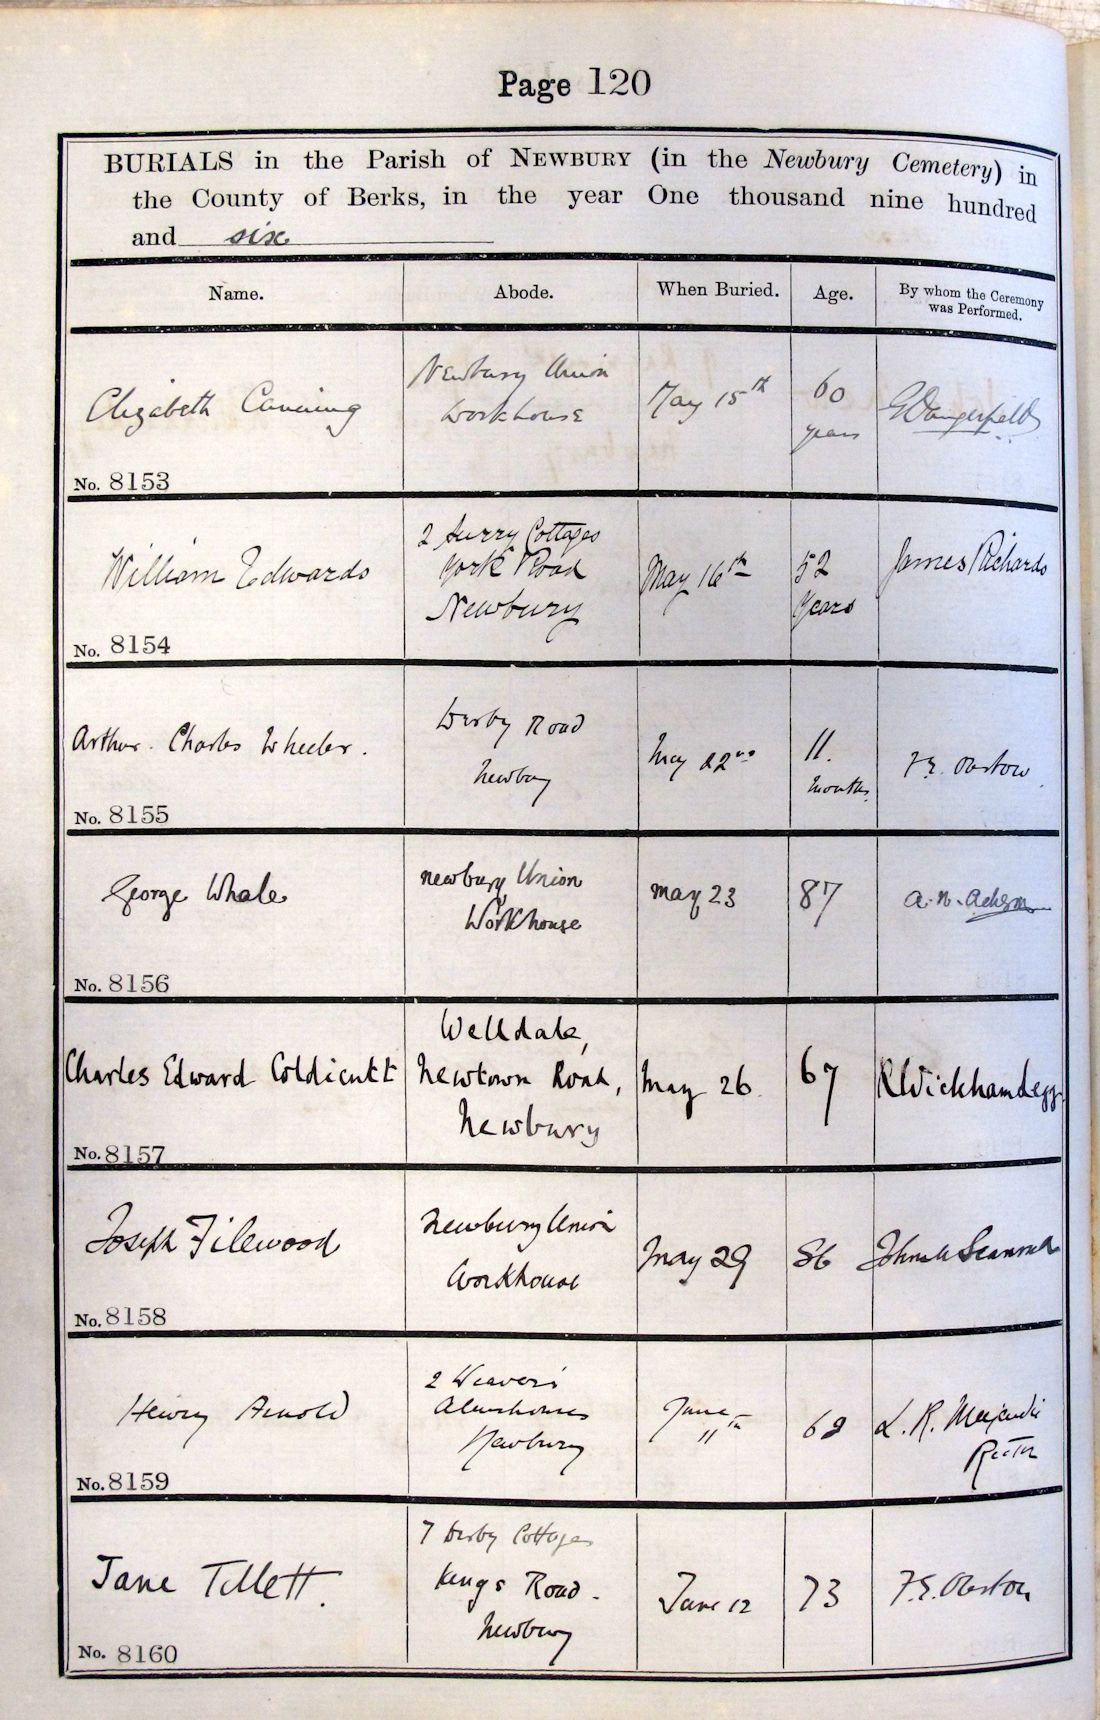 Page 120
BURIALS in the Parish of NEWBURY (in the Newbury Cemetery) in
the County of Berks, in the year One thousand nine hundred
and six
Name.
Abode.
When Buried.
Age.
By whom the Ceremony
was Performed.
Elizabeth Canning
Newbury Union
Workhouse
May 15th
60
years
GDangerfield
No. 8153
William Edwards
2 Surry Cottages
York Road
Newbury
May 16th
52
Years
James Richards
No. 8154
Arthur Charles Wheeler.
Derby Road
Newbury
May 22nd
11.
months
F.E. Obstow
No. 8155
George Whale
newbury Union
Workhouse
may 23
87
a. n.
No. 8156
Charles Edward Coldicutt
Welldale,
Newtown Road,
Newbury
May 26.
67
RWickhamLegg.
No. 8157
Joseph Filewood
Newbury Union
Workhouse
May 29
86
No. 8158
Henry Arnold
2 Weavers
Almshouses
Newbury
June
11th
L. R. Majendie
Rector
No. 8159
Jane Tillett.
7 Derby Cottages
Kings Road.
Newbury
June 12
73
F.E. Obstow
No. 8160